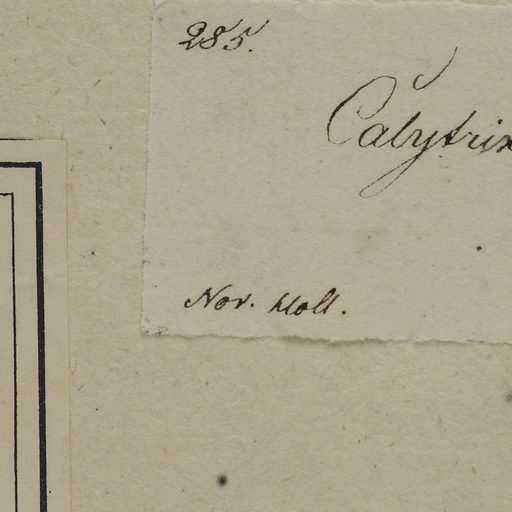 285.
Calytrix
Nov. Holl.